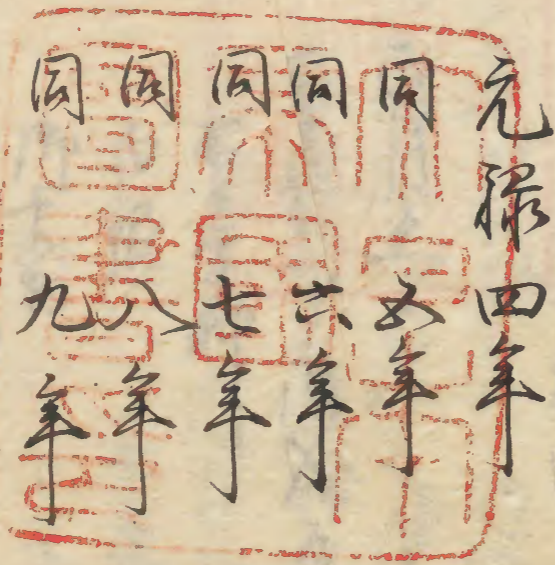 元禄四年
同五年
同六年
同七年
同八年
同九年